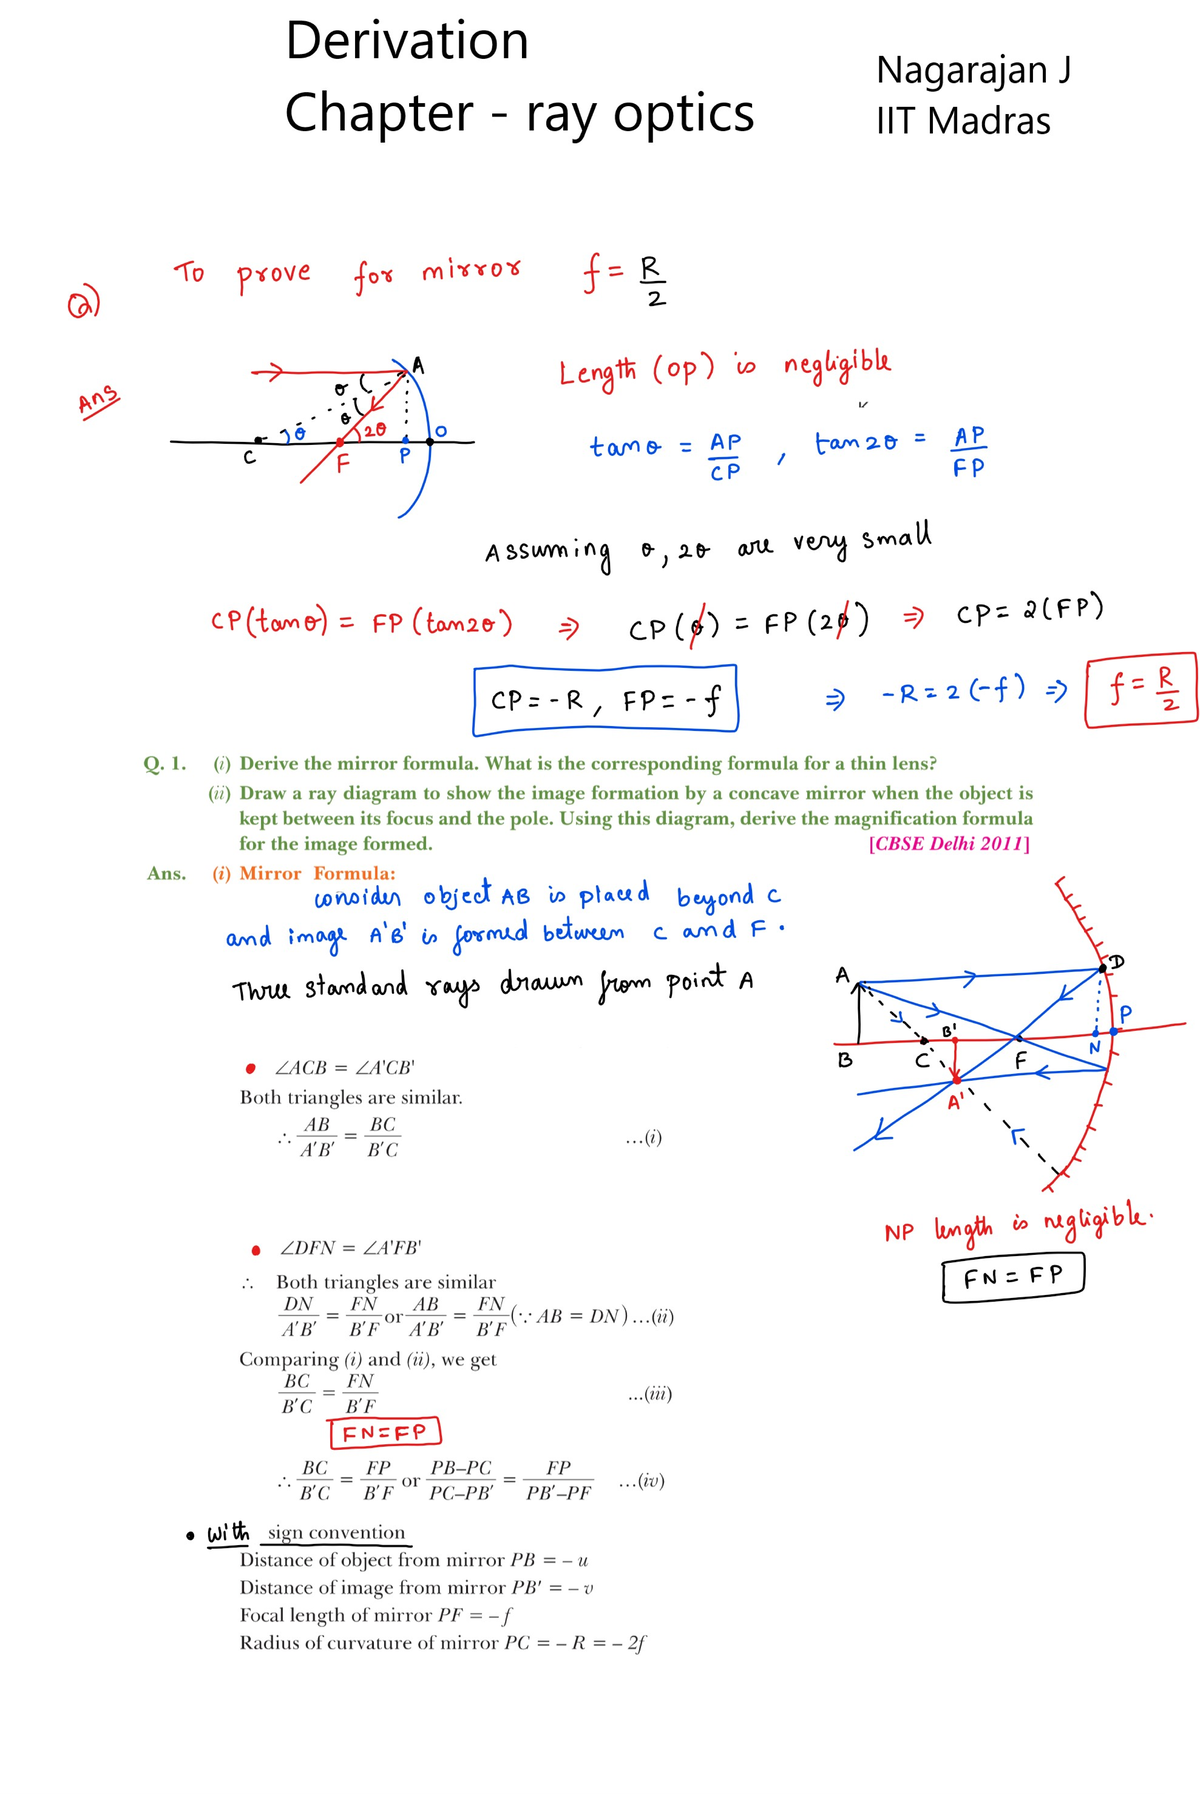 Derivation
Chapter - ray optics
Nagarajan J
IIT Madras
Q) To prove for mirror f = R/2
Ans
A
θ
θ
θ
2θ
O
C
F
P
Length (OP) is negligible
tanθ = AP/CP , tan2θ = AP/FP
Assuming θ, 2θ are very small
CP(tanθ) = FP(tan2θ) ⇒ CP(θ) = FP(2θ) ⇒ CP = 2(FP)
CP = -R, FP = -f ⇒ -R = 2(-f) ⇒ f = R/2
Q. 1. (i) Derive the mirror formula. What is the corresponding formula for a thin lens?
(ii) Draw a ray diagram to show the image formation by a concave mirror when the object is
kept between its focus and the pole. Using this diagram, derive the magnification formula
for the image formed. [CBSE Delhi 2011]
Ans. (i) Mirror Formula:
consider object AB is placed beyond C
and image A'B' is formed between C and F.
Three standand rays drawn from point A
A
D
P
B'
B
C
F
N
A'
NP length is negligible.
FN = FP
• ∠ACB = ∠A'CB'
Both triangles are similar.
∴ AB/A'B' = BC/B'C ...(i)
• ∠DFN = ∠A'FB'
∴ Both triangles are similar
DN/A'B' = FN/B'F or AB/A'B' = FN/B'F (∵ AB = DN) ...(ii)
Comparing (i) and (ii), we get
BC/B'C = FN/B'F ...(iii)
FN = FP
∴ BC/B'C = FP/B'F or PB–PC/PC–PB' = FP/PB'–PF ...(iv)
• With sign convention
Distance of object from mirror PB = – u
Distance of image from mirror PB' = – v
Focal length of mirror PF = – f
Radius of curvature of mirror PC = – R = – 2f